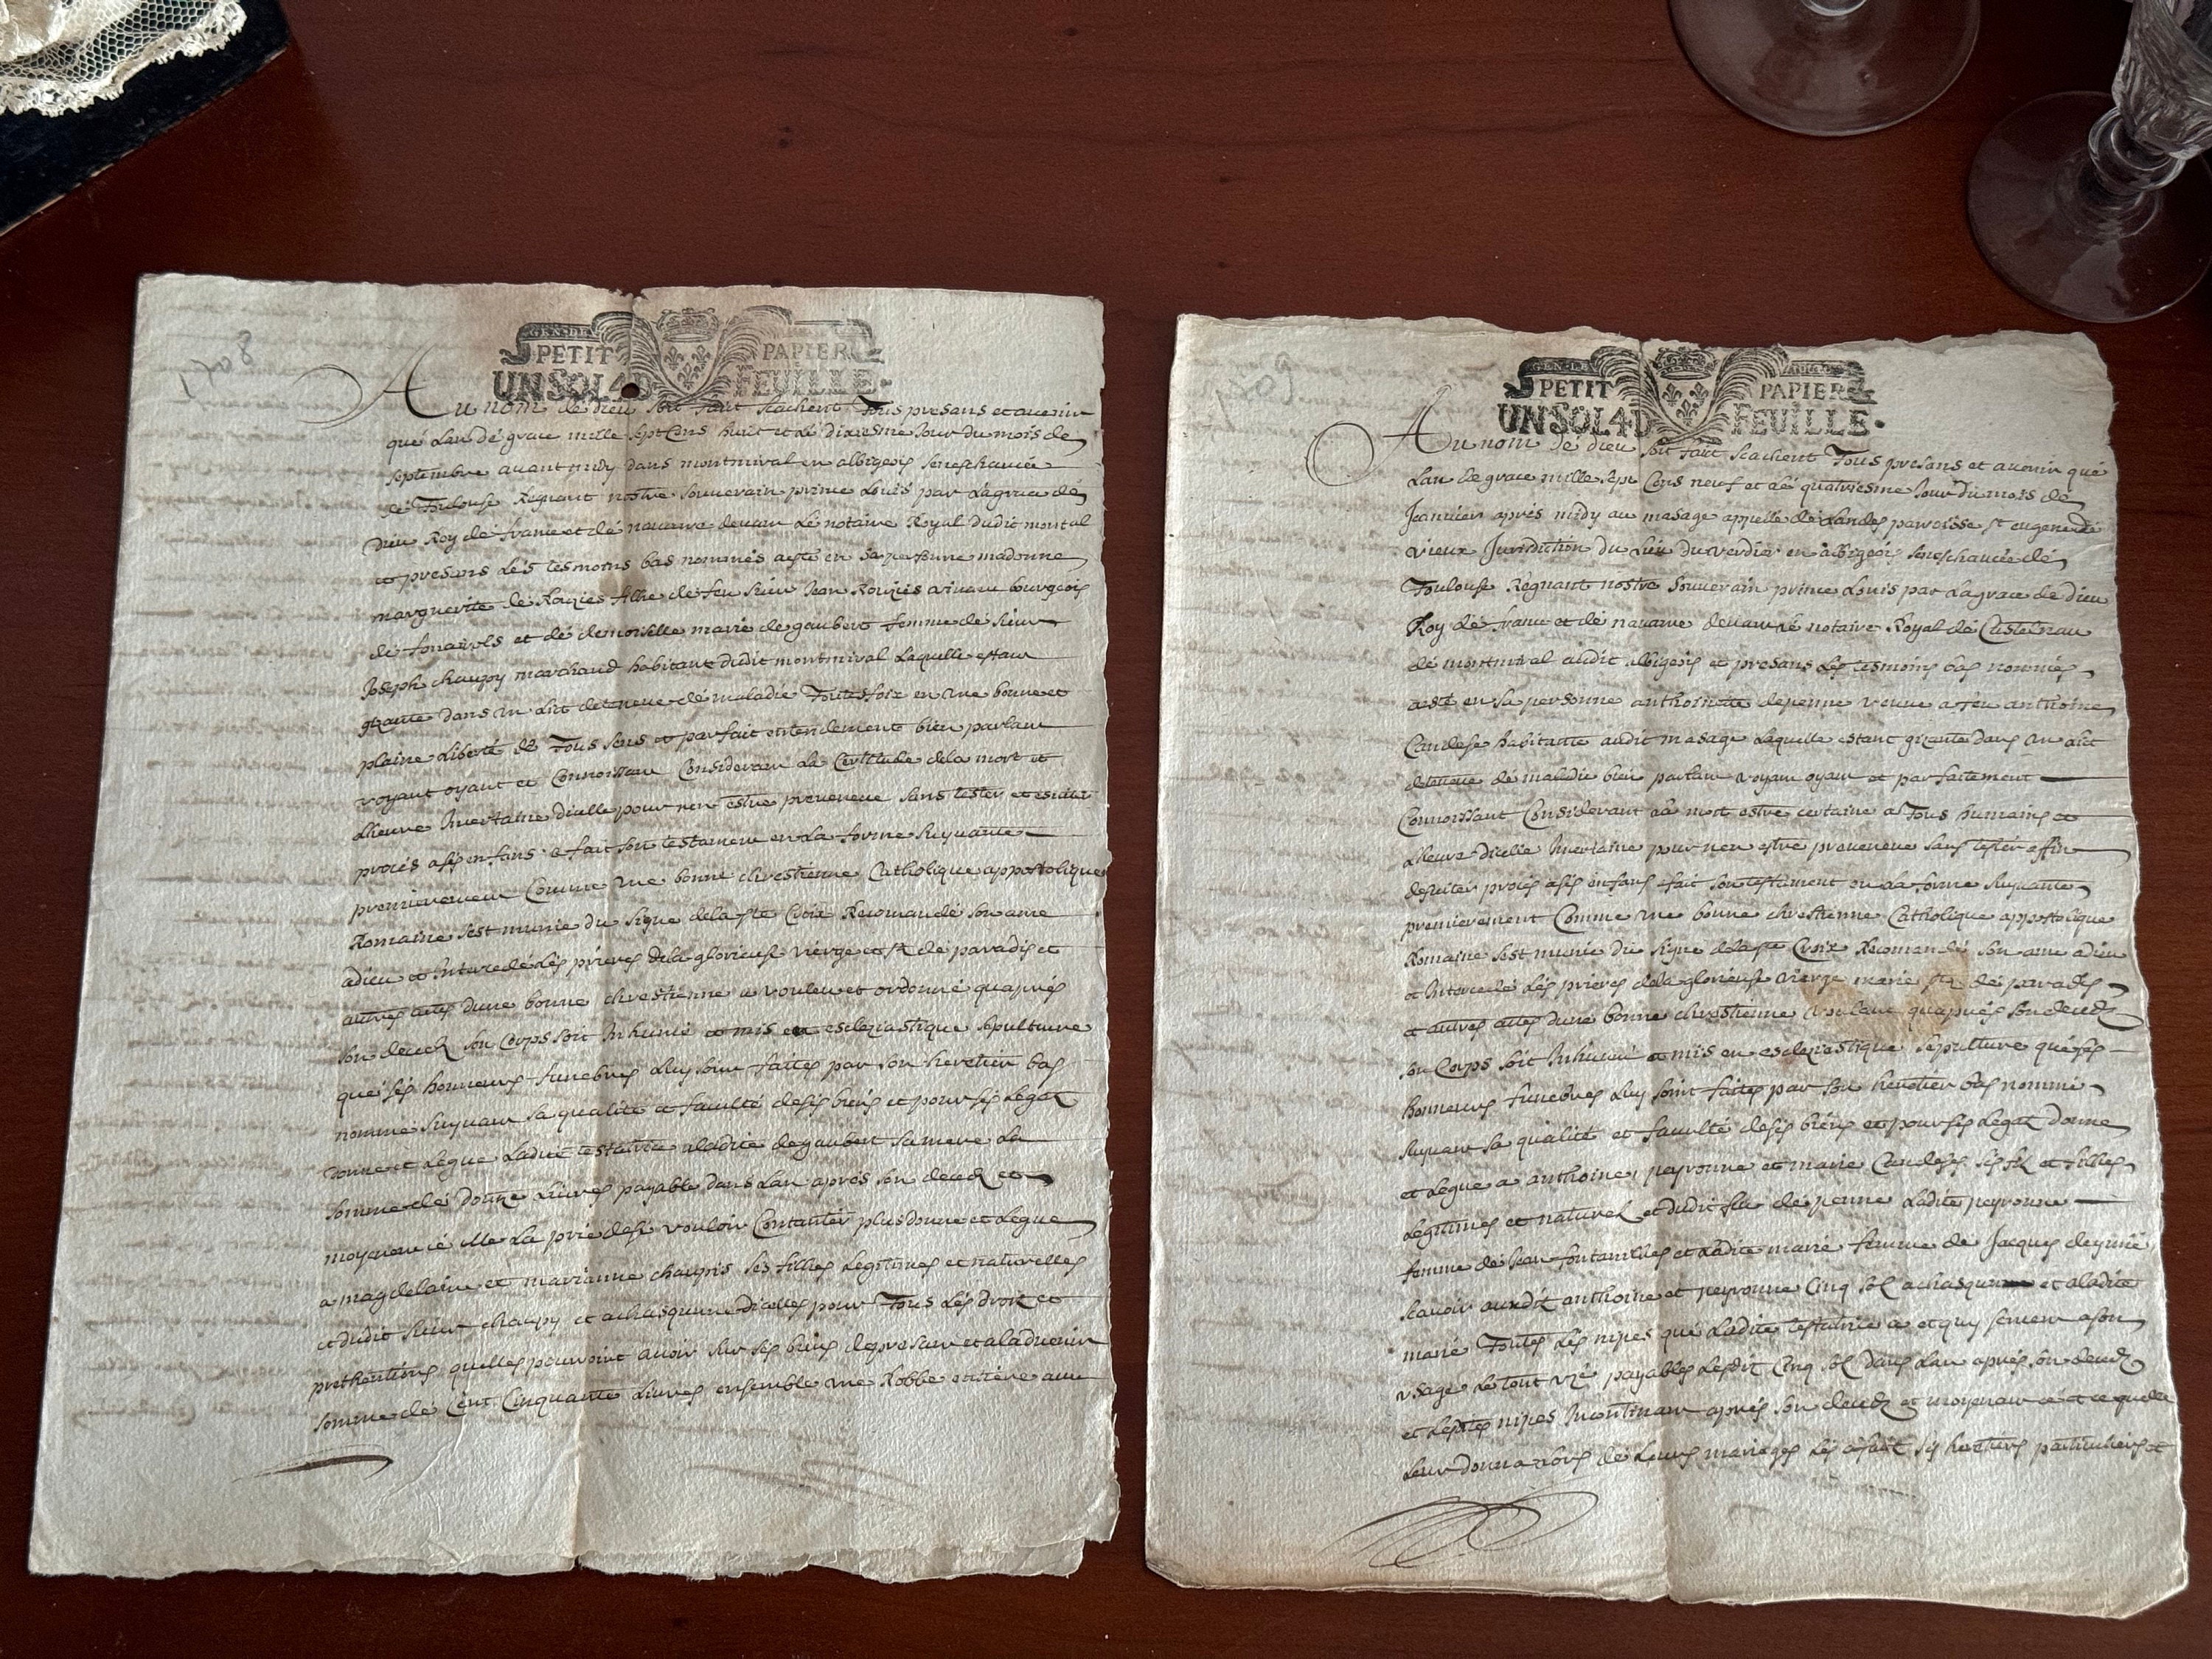 1708
GEN. DE
PETIT PAPIER
UN SOL 4 D FEUILLE.
Au nom de dieu soit faict scachent Tous presans et avenir
que Lan de grace mille sept Cens huit et le dixiesme Jour du mois de
septembre avant midy dans montmiral en albigeois seneschaucée
de Toulouse Regnant nostre souverain prince Louis par La grace de
dieu Roy de france et de navarre devant Le notaire Royal dudit montal
et presans Les tesmoins bas nommés en sa personne madonne
marguerite de feu sieur Jean bourgeois
de et de demoiselle marie de gaubert femme de sieur
Joseph marchand habitant dudit montmiral Laquelle estant
gizante dans un Lit detenue de maladie Toutesfois en une bonne et
plaine Liberté de Tous sens et parfait entendement bien parlant
voyant oyant et Connoissant Considerant La Certitude de la mort et
Lheure Incertaine dicelle pour nen estre prevenue sans tester et esviter
procés a ses enfans a fait son testament en La forme suyvante
premierement Comme une bonne chrestienne Catholique appostolique
Romaine sest munie du signe de la ste Croix Recomandé son ame
a dieu et Intercedé Les prieres de la glorieuse vierge et sts de paradis et
autres actes dune bonne chrestienne a voulu et ordonné quapres
son deces son Corps soit Inhumé et mis en escleziastique sepulture
que ses honneurs funebres Luy soint faites par son heretier bas
nommé suyvant sa qualité et faculté de ses biens et pour ses Legatz
donne et Legue Ladite testatrice a Ladite de gaubert sa mere La
somme de douze Livres payable dans Lan apres son deces et
moyenant ce elle La prie de se vouloir Contanter plus donne et Legue
a magdelaine et marianne ses filles Legitimes et naturelles
et dudit sieur et a chasquune dicelles pour Tous Les droitz et
prethentions quelles pourroint avoir sur ses biens de presant et a Ladvenir
somme de Cent Cinquante Livres ensemble une Robbe entiere
GEN. DE
PETIT PAPIER
UN SOL 4 D FEUILLE.
Au nom de dieu soit faict scachent Tous presans et avenir que
Lan de grace mille sept Cens neuf et le quatriesme Jour du mois de
Jeanvier apres midy au masage appelle de Landes parroisse st eugene de
vieux Jurisdiction du Lieu du verdier en albigeois seneschaucée de
Toulouse Regnant nostre souverain prince Louis par La grace de dieu
Roy de france et de navarre devant Le notaire Royal de Castelnau
de montmiral audit albigeois et presans Les tesmoins bas nommés
esté en sa personne anthoinette depenne veuve a feu anthoine
habitante audit masage Laquelle estant gizante dans un Lit
detenue de maladie bien parlant voyant oyant et parfaitement
Connoissant Considerant La mort estre certaine a Tous humains et
Lheure dicelle Incertaine pour nen estre prevenue sans tester affin
desviter procés a ses enfans fait son testament en La forme suyvante
premierement Comme une bonne chrestienne Catholique appostolique
Romaine sest munie du signe de la ste Croix Recomandé son ame a dieu
et Intercedé Les prieres de la glorieuse vierge marie sts de paradis
et autres actes dune bonne chrestienne voulant quapres son deces
son Corps soit Inhumé et mis en esclesiestique sepulture que ses
honneurs funebres Luy soint faites par son heretier bas nommé
suyvant sa qualité et faculté de ses biens et pour ses Legatz donne
et Legue a anthoine, peyronne et marie ses fils et filles
Legitimes et naturelz et dudit de penne Ladite peyronne
femme de Jean et Ladite marie femme de Jacques
scavoir auxditz anthoine et peyronne Cinq sols a chasqun et a Ladite
marie Toutes Les nipes que Ladite testatrice a et quy servent a son
usage Le tout payables Lesdits Cinq sols dans Lan apres son deces
et Lesdites nipes Incontinant apres son deces et moyenant ce et ce quelle
Leur donna Lors de Leurs mariages Les a fait ses heretiers particuliers et